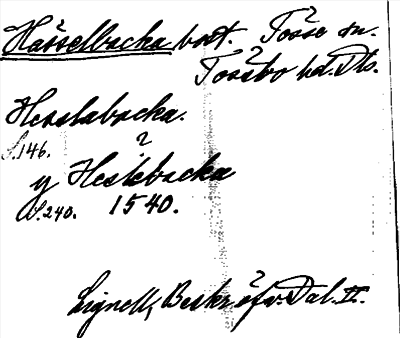 Hässelbacka hmt. Tösse sn.
Tössbo hd. Dls.
Hesslabacka.
S. 146.
?
y Heslebacka
S. 240. 1540.
Lignell, Beskr. öfv. Dal. II.